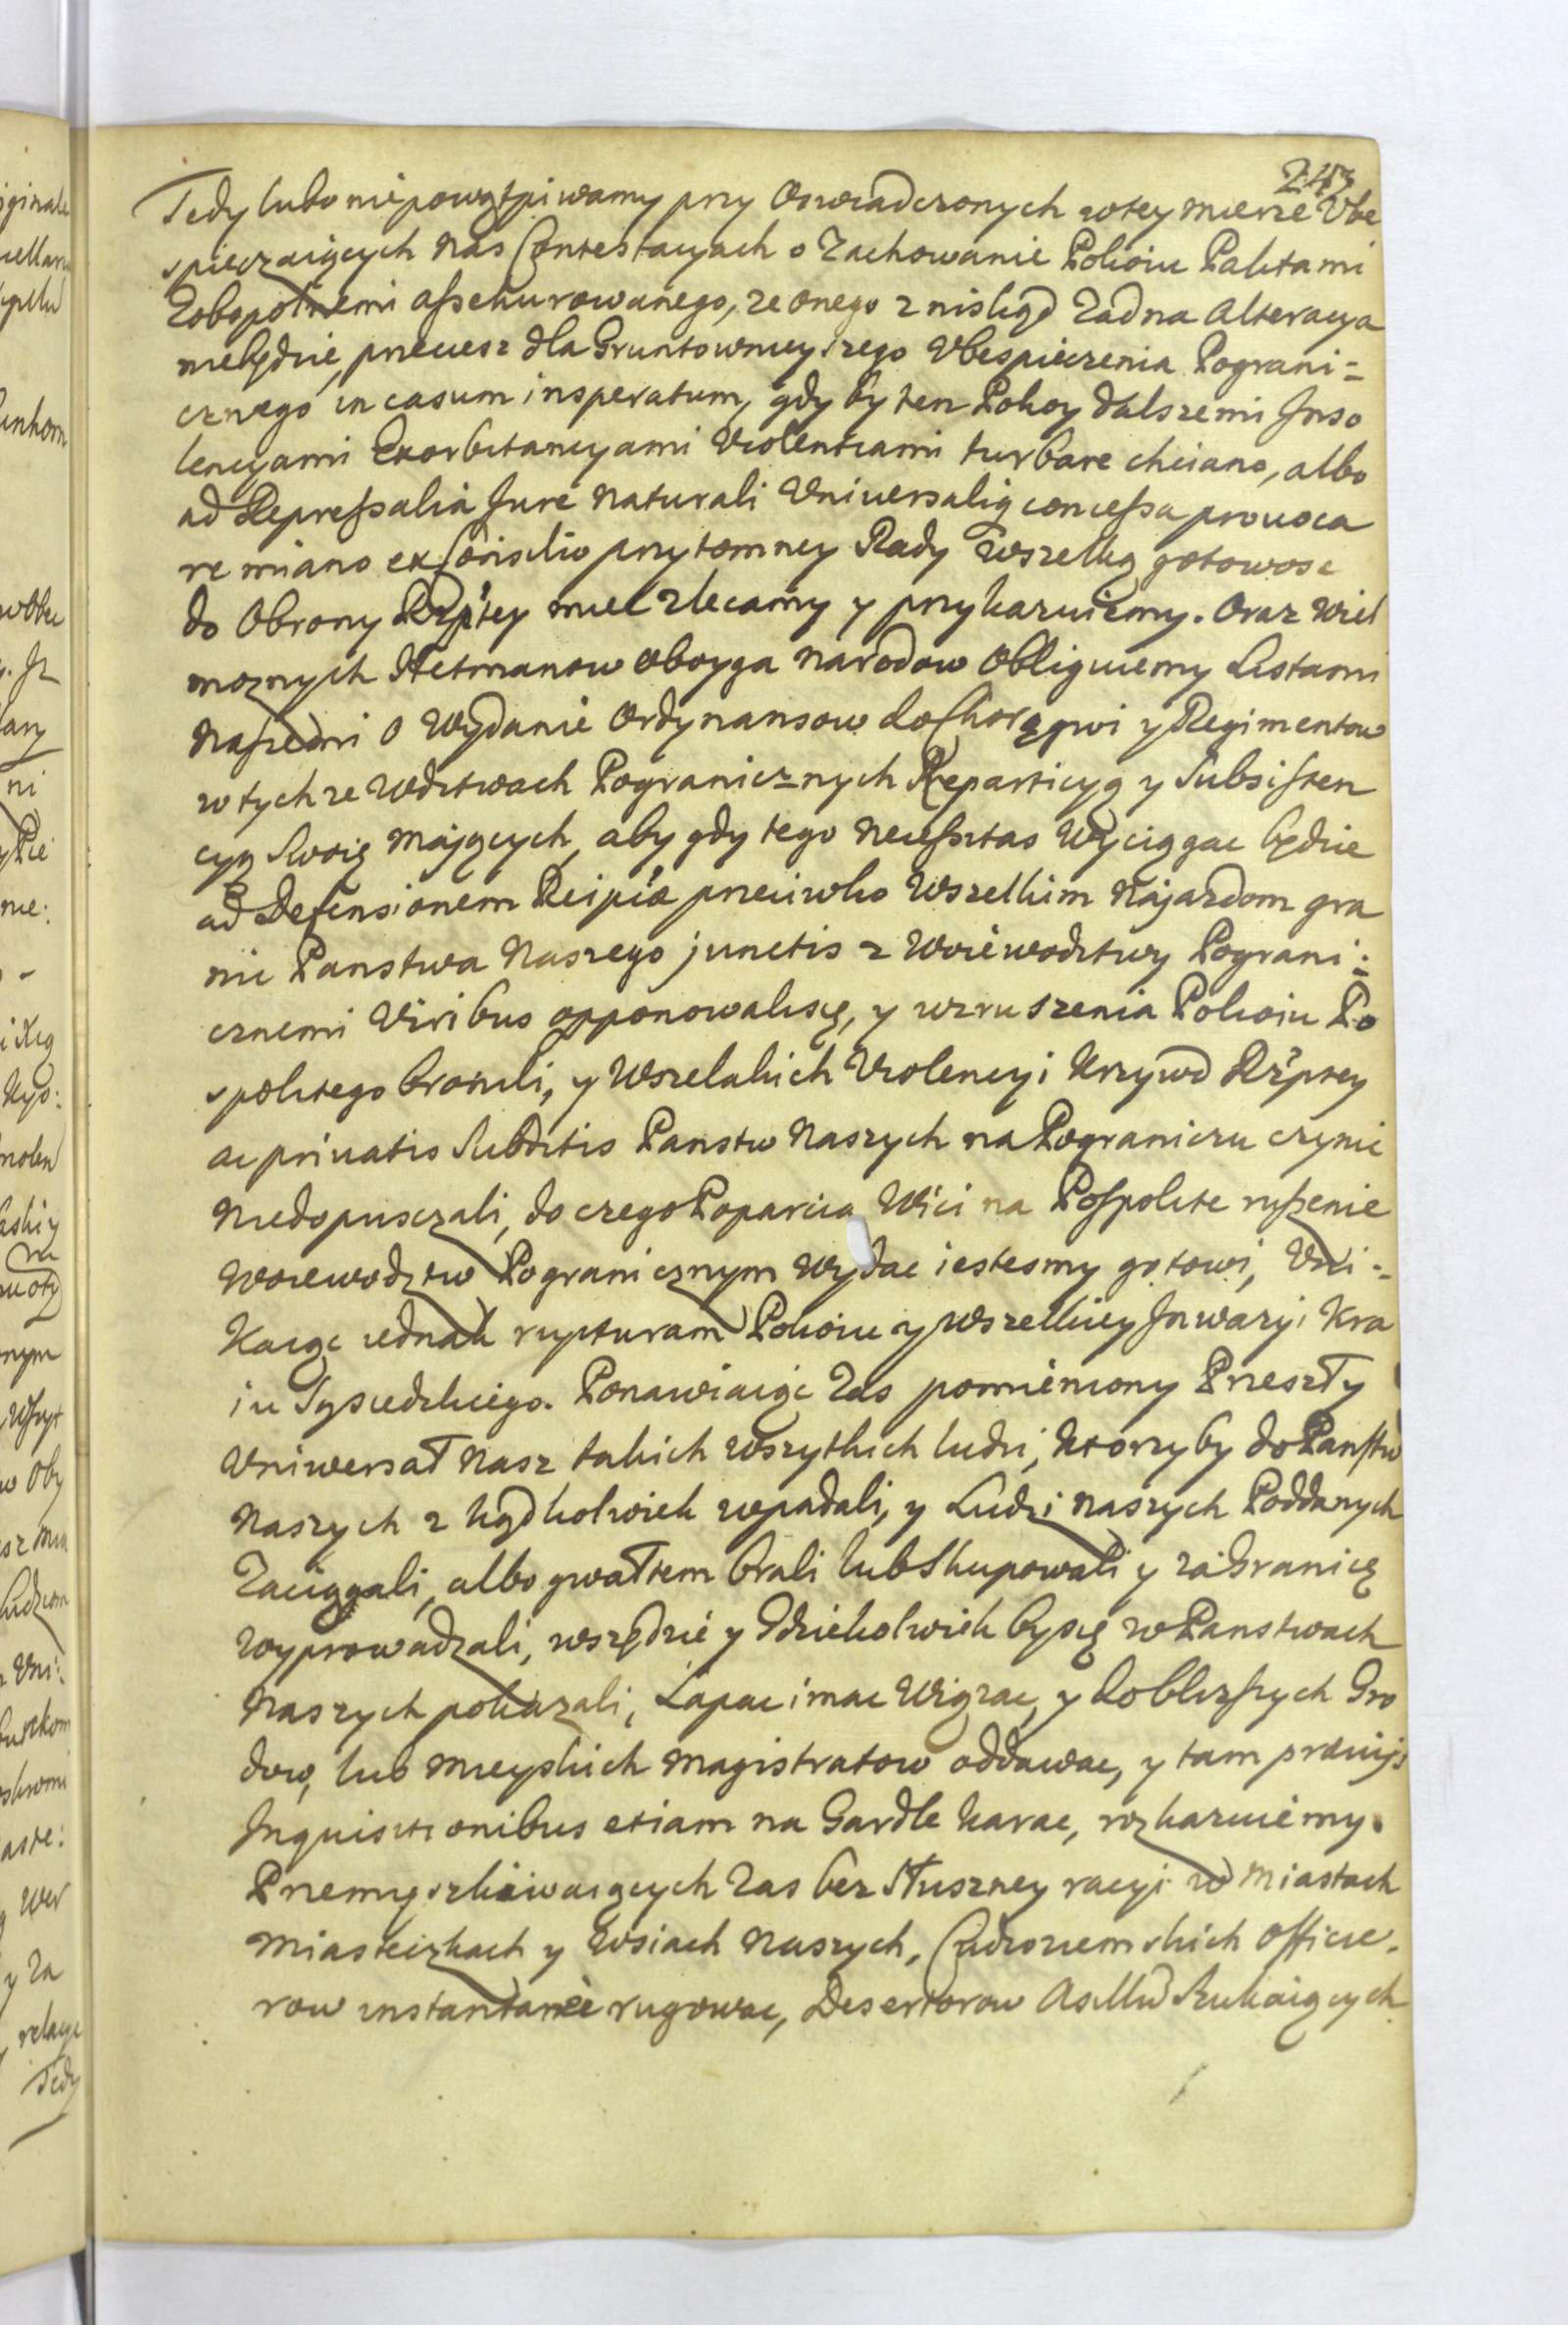 243
Tedy lubo niepowątpiwamy przy Oswiadczonych wtey mierze Vbe
spieczaiących nas Contestacyach o Zachowanie Pokoiu Paktami
Zobopolnemi assekurowanego, ze onego z niskąd Zadna Alteracya
niebędzie, przeciesz dla Gruntownieyszego Vbespieczenia Pograni=
cznego in casum insperatum, gdy by ten Pokoy dalszemi Inso
lencyami Exorbitancyami Violentiami turbare chciano, albo
ad Repressalia Jure naturali Vniuersaliq concessa prouoca
re miano ex Consilio przytomney Rady wszelką gotowosc
do Obrony Rzptey miec zlecamy y przykazuiemy. Oraz Wiel
moznych Hetmanow oboyga narodow Obliguiemy Listami
Naszemi o Wydanie Ordynansow do Chorągwi y Regimentow
w tychze Wdztwach Pogranicznych Reparticyą y Subsisten
cyą Swoię mających, aby gdy tego necessitas Wyciągac będzie
ad Defensionem Reipcæ przeciwko Wszelkim Najazdom gra
nic Panstwa Naszego junctis z Woiewodztwy Pograni=
cznemi Viribus opponowalisię, y wzruszenia Pokoiu Po
spolitego bronili, y Wszelakich Violencyi Krzywd Rzptey
ac priuatis Subditis Panstw Naszych na Pograniczu czynic
niedopusczali, do czego Poparcia Wici na Pospolite ruszenie
Woiewodztw Pogranicznym Wydac iestesmy gotowi, Vni=
kaiąc iednak rupturam Pokoiu y Wszelkiey Inwazyi Kra
iu Sąsiedzkiego. Ponawiaiąc Zas pomieniony Przeszły
Vniwersał Nasz takich wszytkich ludzi, ktorzy by do Panstw
Naszych z kądkolwiek wpadali, y Ludzi naszych Poddanych
Zaciągali, albo gwałtem brali lub Skupowali y zá Granicę
wyprowadzali, wszędzie y Gdziekolwiek bysię w Panstwach
Naszych pokazali, Łapac imac Wiązac, y do blizszych Gro
dow, lub mieyskich magistratow oddawac, y tam præuijs
Inquisitionibus etiam na Gardle karac, rozkazuiemy.
Przemyszkiwaiących Zas bez Słuszney racyi w miastach
miasteczkach y Wsiach Naszych, Cudzoziemskich Officie-
row instantanee rugowac, Desertorow Asillu Szukaiących